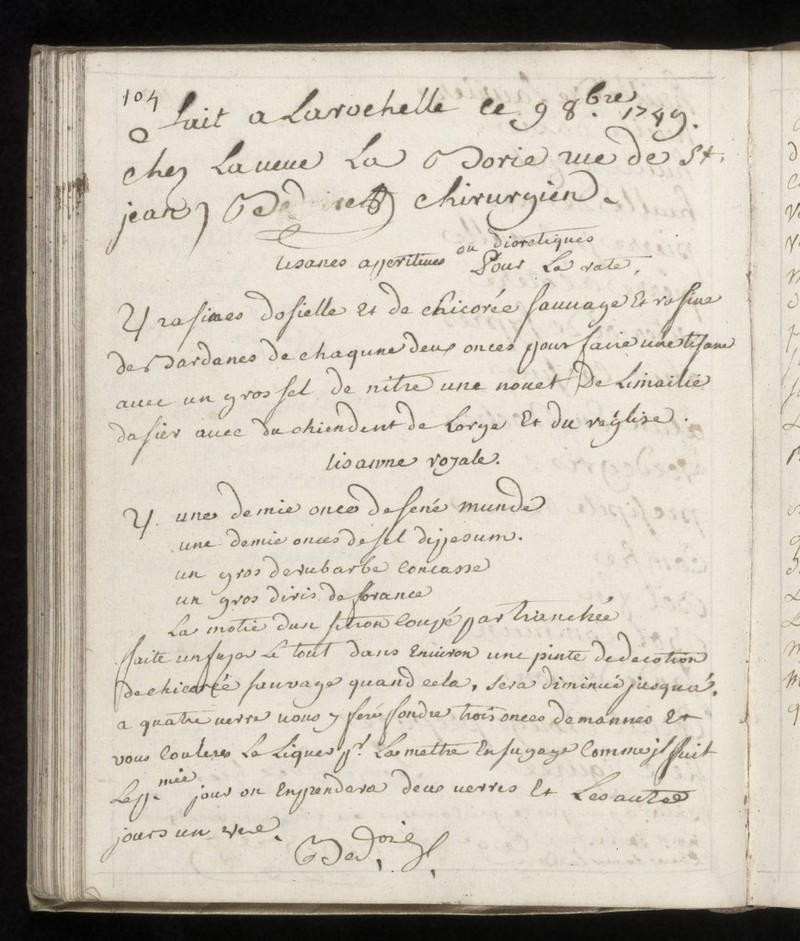 104
fait a Larochelle ce 9 8.bre 1749.
chez La veue La Borie rue de St.
jean chirurgien.
tisanes apperitives ou dioretiques
Pour La rate.
rasines dosielle Et de chicorée sauvage Et rasine
de Bardanes de chaqune deux onces pour faire une tisane
avec un gros sel de nitre une nouet De Limailie
dasier avec du chiendent de Lorge Et du reglise.
tisanne royale.
une demie once de sené munde
une demie onces de sel dipsesum.
un gros de rubarbe Concasse
un gros diris de florance
La motié dun sitron Coupé par tranchée
faite unfuser Le tout dans Environ une pinte dedecotion
de chicorée sauvage quand cela, sera diminué jusqua.
a quatre verre vous y feré fondre trois onces de mannes Et
vous Couleres La Liquer pr. La mettre En fusage Comme jl suit
Le pr.mier jour on Enprendera deux verres Et Les autres
jours un vere.